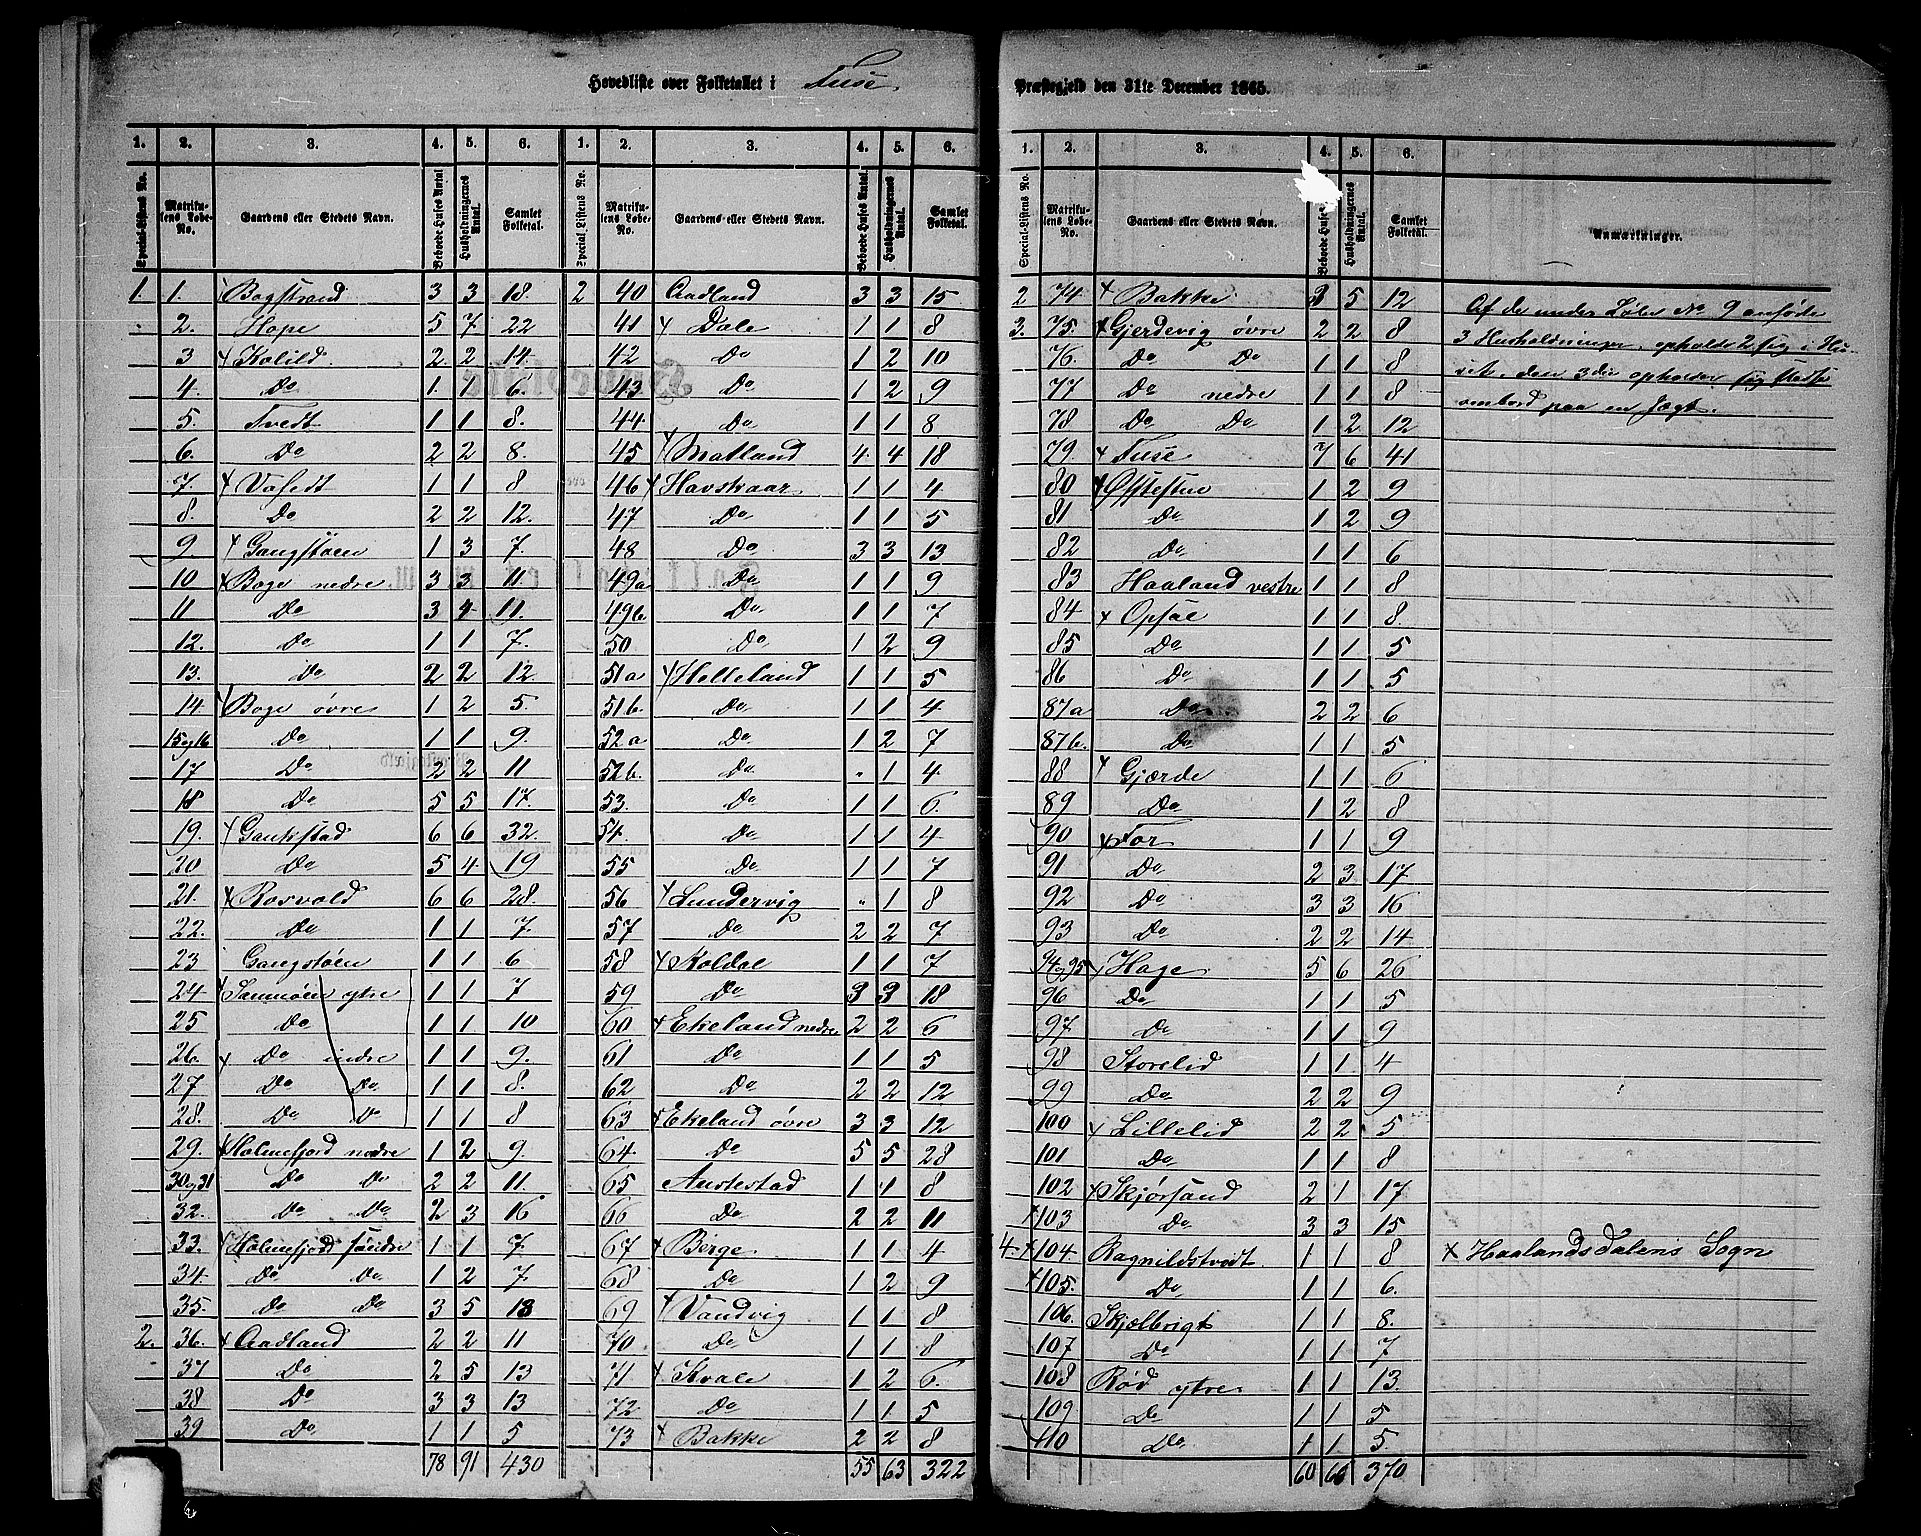 Hovedliste over Folketallet i Fuse Præstegjeld den 31te December 1865.
1. 2. 3. 4. 5. 6. 1. 2. 3. 4. 5. 6.
Special-Listens No. Matrikulens Løbe-No. Gaardens eller Stedets Navn. Beboede Huses Antal Husholdningernes Antal. Samlet Folketal. Special-Listens No. Matrikulens Løbe-No. Gaardens eller Stedets Navn. Beboede Huses Antal. Husholdningernes Antal. Samlet Folketal.
1. 1. x Bogstrand 3 3 18
2. Hope 5 7 22
3 x Kolild 2 2 14
4. Do 1 1 6
5. Tvedt 1 1 8
6. Do 2 2 8
7. x Vosedt 1 1 8
8. Do 2 2 12
9 x Gangstøen 1 3 7
10 x Boge nedre 3 3 11
11 Do 3 4 11
12. Do 1 1 7
13. Do 2 2 12
14 x Boge øvre 1 2 5
15 og 16 Do 1 1 9
17 Do 2 2 11
18 Do 5 5 17
19. x Gaukstad 6 6 32
20 Do 5 4 19
21. x Rosvold 6 6 28
22. Do 1 1 7
23 Gangstøen 1 1 6
24 x Samnøen ytre 1 1 7
25 Do 1 1 10
26. x Do indre 1 1 9
27 Do Do 1 1 8
28. Do Do 1 1 8
29. x Holmefjord nedre 1 2 9
30 og 31 Do Do 2 2 11
32. Do Do 2 3 16
33. x Holmefjord søndre 1 1 7
34. Do Do 1 2 7
35. Do Do 3 5 13
2. 36. x Aadland 2 2 11
37 Do 2 5 13
38 Do 3 3 13
39 Do 1 1 5
78 91 430
2 40 Aadland 3 3 15
41 x Dale 1 1 8
42 Do 1 2 10
43 Do 1 2 9
44 Do 1 1 8
45 x Matland 4 4 18
46 x Havskaar 1 1 4
47 Do 1 1 5
48 Do 3 3 13
49a Do 1 1 9
49b Do 1 1 7
50 Do 1 2 9
51a x Helleland 1 1 5
51b. Do 1 1 4
52a Do 1 2 7
52b. Do " 1 4
53. Do 1 1 6
54. Do 1 1 4
55 Do 1 1 7
56 x Lundervig " 1 8
57 Do 2 2 7
58 x Koldal 1 1 7
59 Do 3 3 18
60 x Ekeland nedre 2 2 6
61 Do 1 1 5
62 Do 2 2 12
63 x Ekeland øvre 3 3 12
64 Do 5 5 28
65 Austestad 1 1 8
66 Do 2 2 11
67 x Berge 1 1 4
68 Do 1 2 9
69 x Vandvig 1 1 8
70 Do 1 1 8
71 x Kvale 1 2 6
72 Do 1 1 5
73 x Bakke 2 2 8
55 63 322
1. 2. 3. 4. 5. 6.
Special-Listens No. Matrikulens Løbe-No. Gaardens eller Stedets Navn. Beboede Huses Husholdningernes Antal. Samlet Folketal. Anmærkninger.
2 74 x Bakke 3 5 12
3. 75. x Gjerdevig øvre 2 2 8
76 Do Do 1 1 8
77 Do nedre 1 1 8
78 Do Do 1 2 12
79 x Fuse 7 6 41
80 x Øfstestue 1 2 9
81 Do 1 2 9
82 Do 1 1 6
83 Haaland vestre 1 1 8
84 x Opsal 1 1 8
85 Do 1 1 5
86 Do 1 1 5
87a Do 2 2 6
87b. Do 1 1 5
88 x Gjærde 1 1 6
89 Do 1 2 8
90 x For 1 1 9
91 Do 2 3 17
92 Do 3 3 16
93 Do 2 2 14
94 og 95 x Hage 5 6 26
96 Do 1 1 5
97 Do 1 1 9
98 Storelid 1 1 4
99 Do 2 2 9
100 x Lillelid 2 2 5
101 Do 1 1 8
102 x Skjørsand 2 1 17
x 103 Do 3 3 15
4. x 104 Ragnildstvedt 1 1 8 x Haalandsdalens Sogn
x 105. Do 1 1 6
106. Skjælbrigt 1 1 8
107 Do 1 1 7
108 Rød ytre 1 1 13
109 Do 1 1 5
110 Do 1 1 5
60 66 370
Af de under Løbe No 9 anførte
3 Husholdninger, opholde 2 sig i Hu-
set, den 3die opholder sig stedse
ombord paa en Jægt.